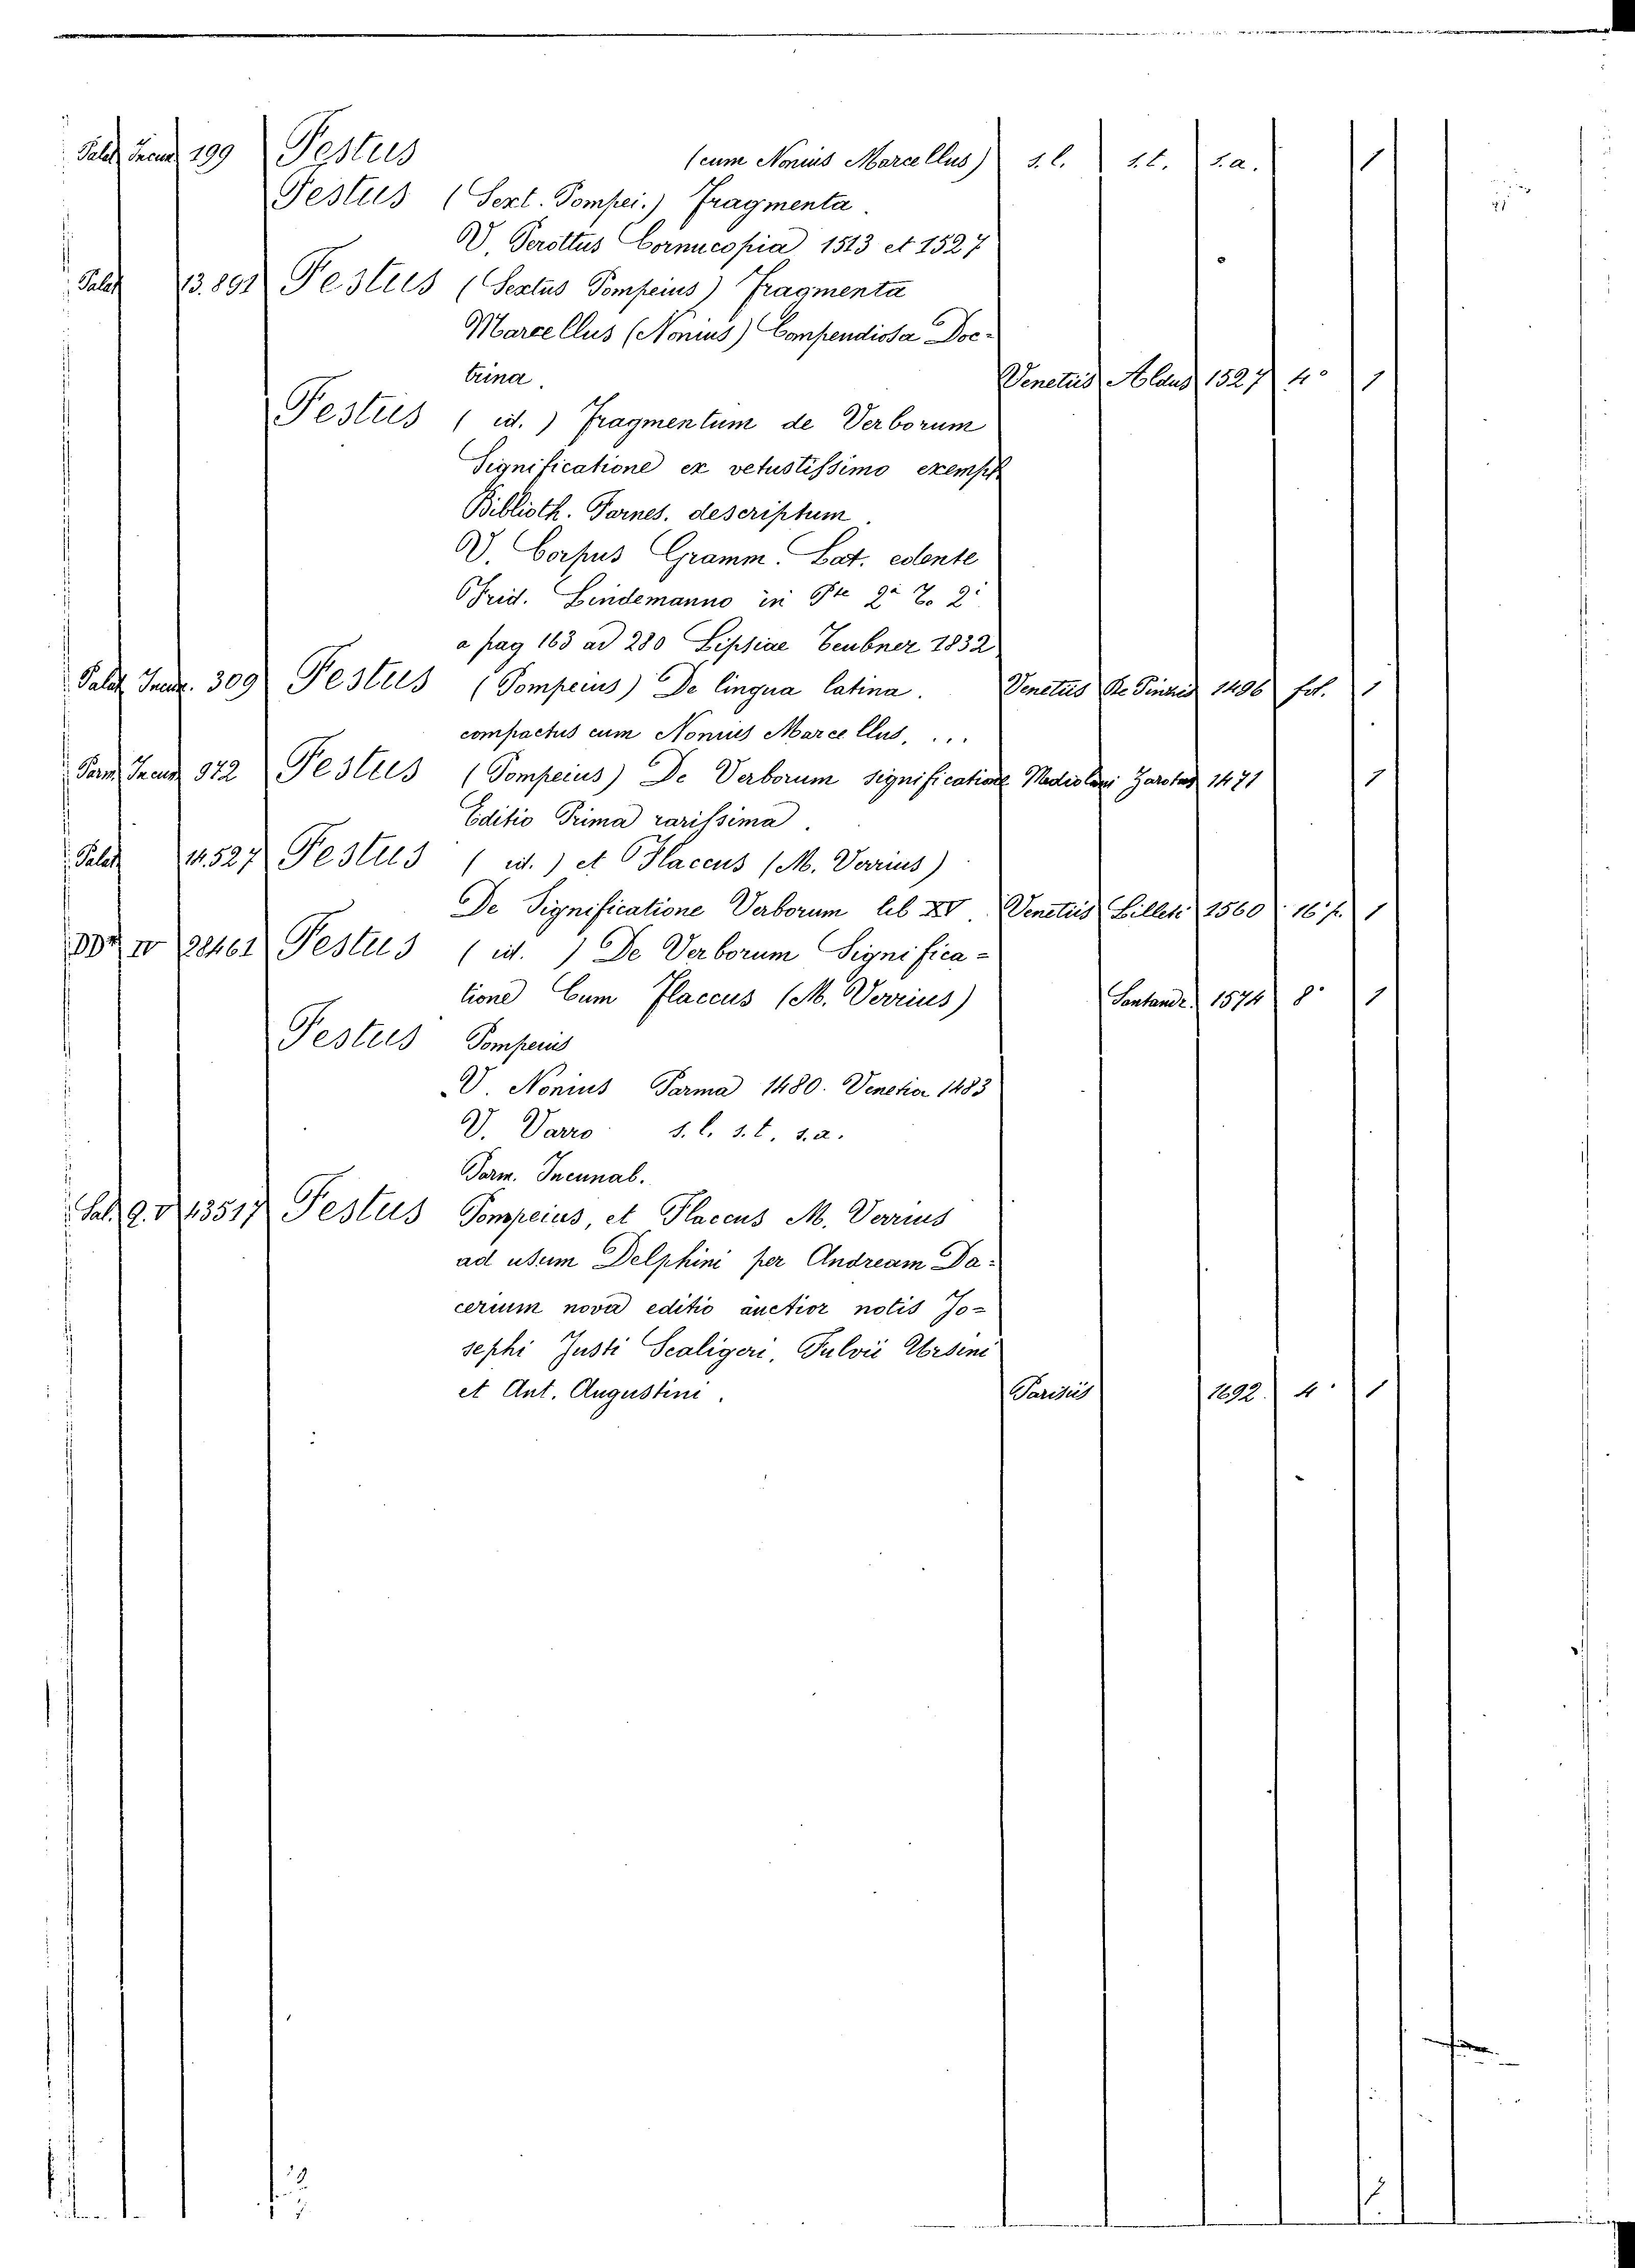 Palat Incun 199 Festus (cum Nonius Marcellus) s.l. s.t. s.a. 1
Festus (Sext. Pompei.) Fragmenta.
V. Perottus Cornucopia 1513 et 1527
Palat 13.891 Festus (Sextus Pompeius) Fragmenta
Marcellus (Nonius) Compendiosa Doc-
trina. Venetiis Aldus 1527 4° 1
Festus (id.) Fragmentum de Verborum
Significatione ex vetustissimo exempl.
Biblioth. Farnes. descriptum.
V. Corpus Gramm. Lat. edente
Frid. Lindemanno in Pte 2a T. 2i
a pag 163 ad 280 Lipsiae Teubner 1832
Palat Incun. 309 Festus (Pompeius) De lingua latina. Venetiis De Pinzis 1496 fol. 1
compactus cum Nonius Marcellus, ...
Parm Incun 972 Festus (Pompeius) De Verborum significatione Mediolani Zarotus 1471 1
Editio Prima rarissima.
Palat 14.527 Festus (id.) et Flaccus (M. Verrius)
De Significatione Verborum lib XV. Venetiis Billet. 1560 16° p. 1
IV 28461 Festus (id.) De Verborum Significa-
tione Cum Flaccus (M. Verrius) Santand. 1574 8° 1
Festus Pompeius
V. Nonius Parma 1480. Venetia 1483
V. Varro s.l. s.t. s.a.
Parm. Incunab.
Sal. Q. V 13517 Festus Pompeius, et Flaccus M. Verrius
ad usum Delphini per Andream Da-
cerium nova editio auctior notis Jo-
sephi Justi Scaligeri, Fulvii Ursini
et Ant. Augustini. Parisiis 1692. 4° 1